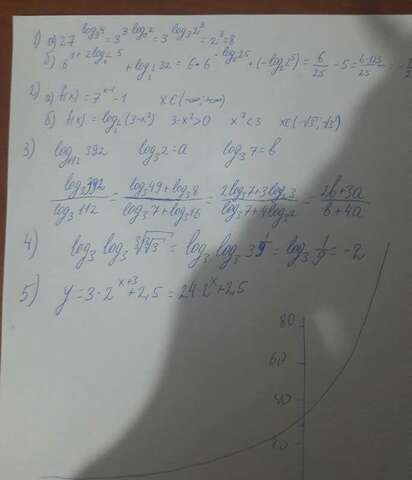 1) а) 27^{log_3 2} = 3^{3 log_3 2} = 3^{log_3 2^3} = 2^3 = 8
б) 6^{1+2log_6 5} + log_{1/2} 32 = 6 · 6^{-log_6 25} + (-log_2 2^5) = 6/25 - 5 = (6-125)/25 =
2) а) f(x) = 7^{x-1} - 1 x∈(-∞; +∞)
б) f(x) = log_2 (3-x²) 3-x²>0 x²<3 x∈(-√3; √3)
3) log_{112} 392 log_3 2 = a log_3 7 = b
log_3 392 / log_3 112 = (log_3 49 + log_3 8) / (log_3 7 + log_3 16) = (2log_3 7 + 3log_3 2) / (log_3 7 + 4log_3 2) = (2b+3a) / (b+4a)
4) log_3 log_3 ∛∛3 = log_3 log_3 3^{1/9} = log_3 1/9 = -2
5) y = 3 · 2^{x+3} + 2,5 = 24 · 2^x + 2,5
80
60
40
20